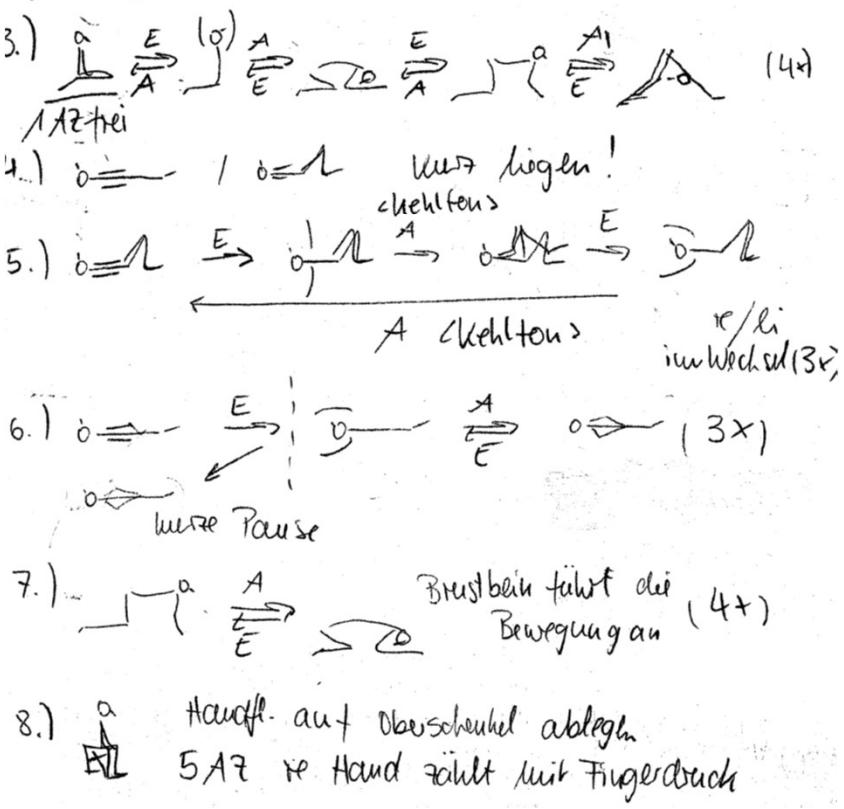 3.) E A (o) A E E A A E (4x)
1 AZ frei
4.) / kurz liegen!
<Kehlton>
5.) E A E
A <Kehlton> re/li
im Wechsel (3x)
6.) E A E (3x)
kurze Pause
7.) A E Brustbein führt die (4x)
Bewegung an
8.) Handfl. auf Oberschenkel ablegen
5 AZ re Hand zählt mit Fingerdruck